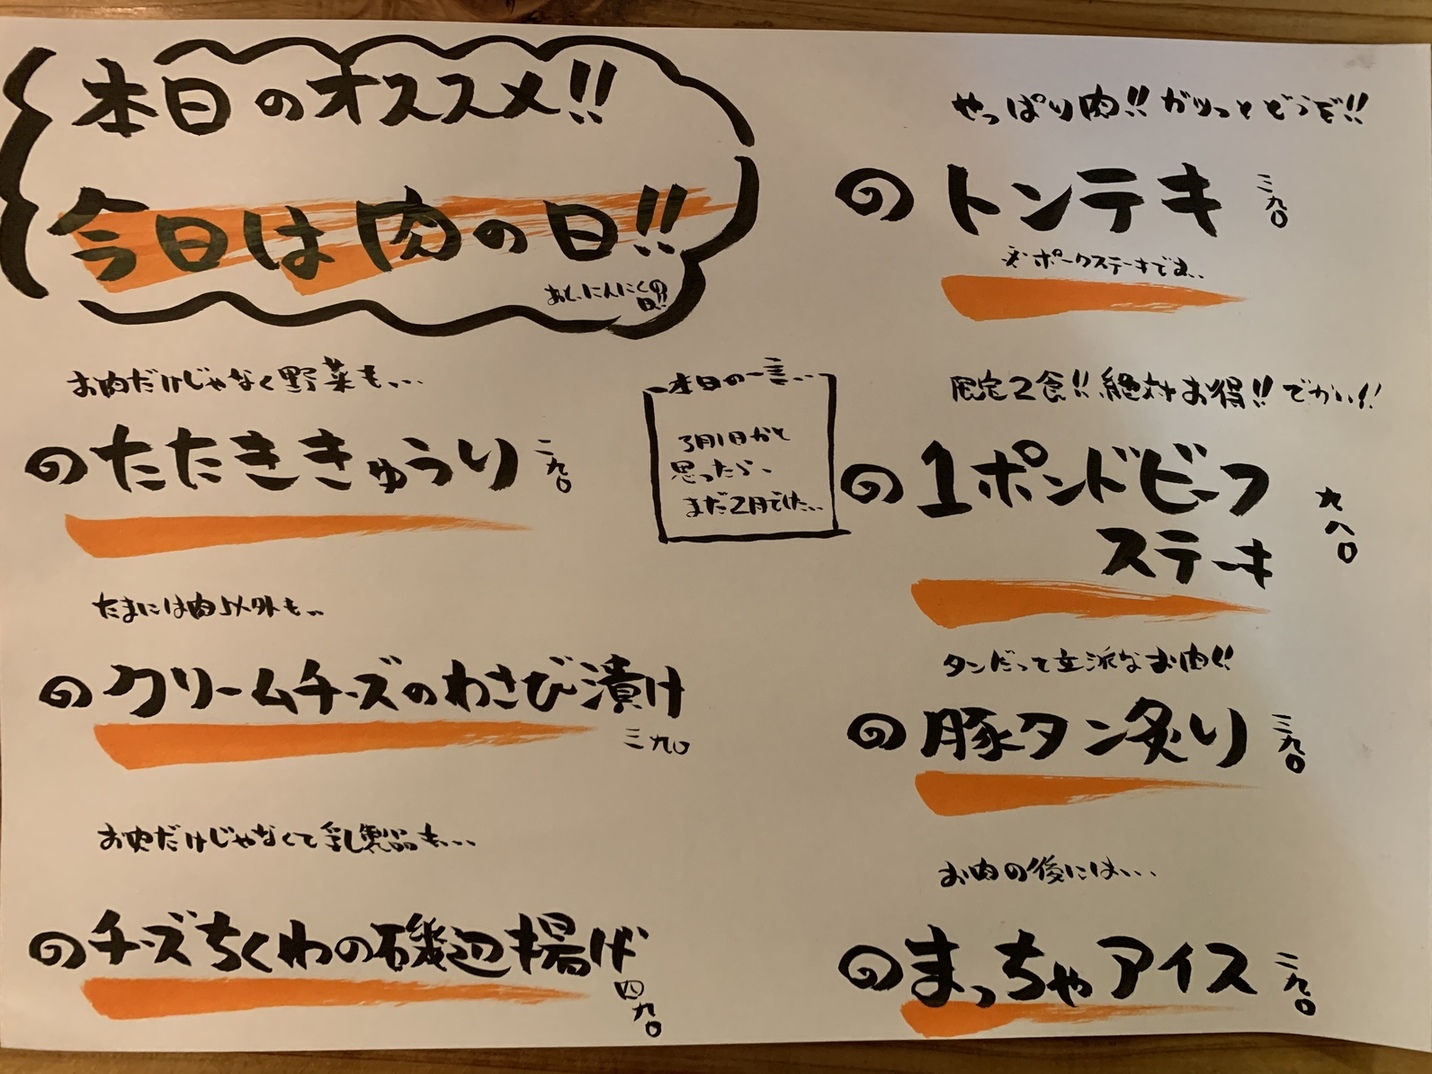 本日のオススメ!!
今日は肉の日!!
おしいにんにくの
日!!
お肉だけじゃなく野菜も...
のたたききゅうり 二九〇
たまには肉以外も..
のクリームチーズのわさび漬け
三九〇
お肉だけじゃなくて乳製品も...
のチーズちくわの磯辺揚げ
四九〇
本日の一言...
3月1日かと
思ったら、
まだ2月でした...
やっぱり肉!!ガツっとどうぞ!!
のトンテキ 三九〇
※ポークステーキでは..
限定2食!!絶対お得!!でかい!!
の1ポンドビーフ
ステーキ 九八〇
タンだって立派なお肉!!
の豚タン炙り 三九〇
お肉の後には...
のまっちゃアイス 二九〇